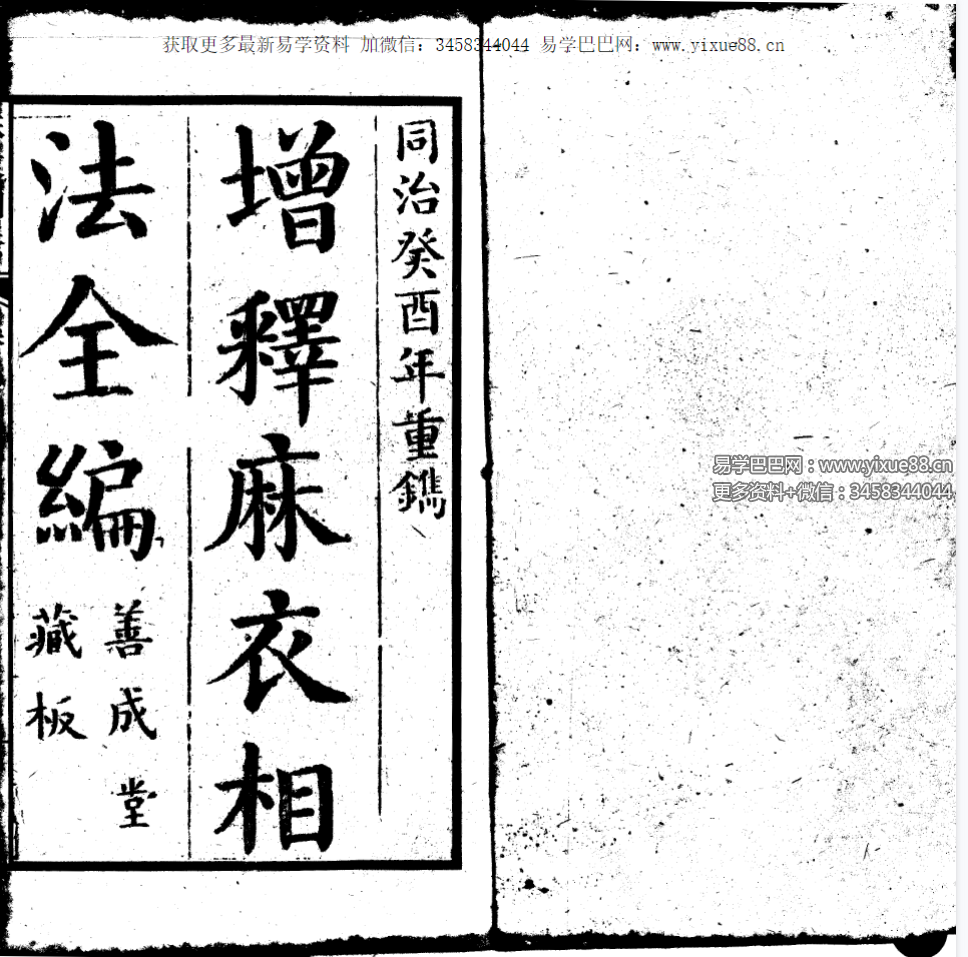 获取更多最新易学资料 加微信：3458344044 易学巴巴网：www.yixue88.cn
同治癸酉年重鐫
增釋麻衣相
法全編
善成堂
藏板
易学巴巴网：www.yixue88.cn
更多资料+微信：3458344044